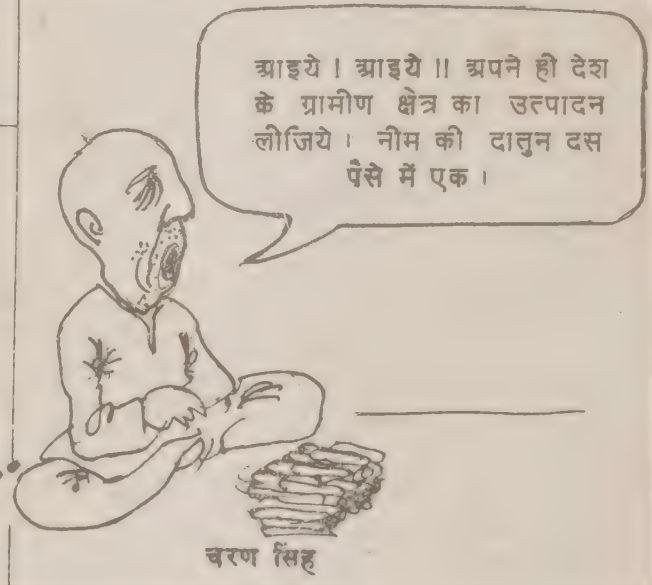 आइये ! आइये !! अपने ही देश
के ग्रामीण क्षेत्र का उत्पादन
लीजिये । नीम की दातुन दस
पैसे में एक ।
चरण सिंह